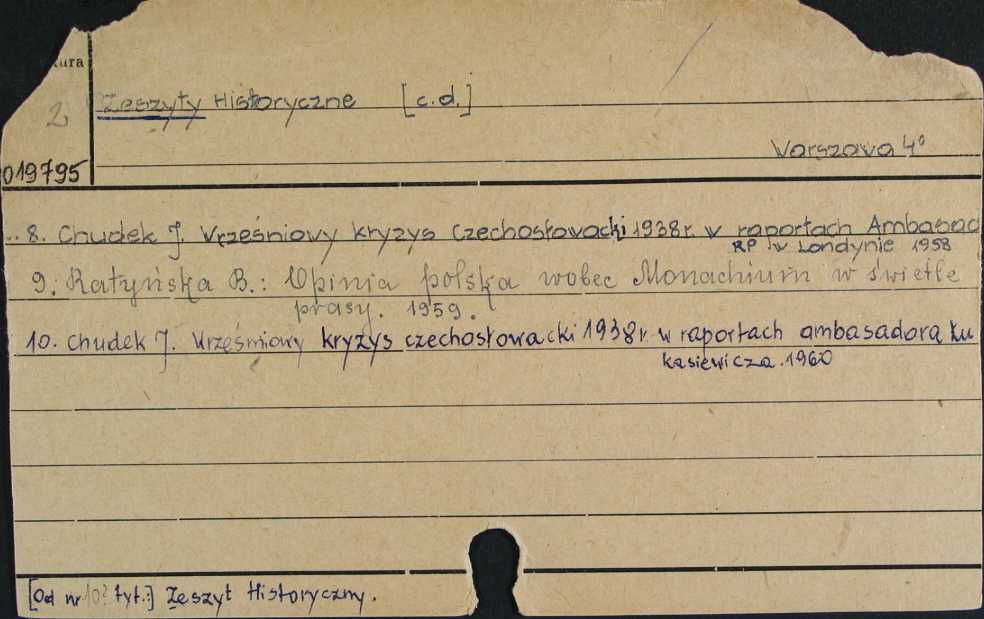 ura
2
Zeszyty Historyczne [c.d.]
Warszawa 4°
019795
8. Chudek J. Wrześniowy kryzys czechosłowacki 1938 r. w raportach Ambasad
RP w Londynie 1958
9. Ratyńska B.: Opinia polska wobec Monachium w świetle
prasy. 1959.
10. Chudek J. Wrześniowy kryzys czechosłowacki 1938 r. w raportach ambasadora Łu
kasiewicza. 1960
[Od nr 10? tyt.:] Zeszyt Historyczny.